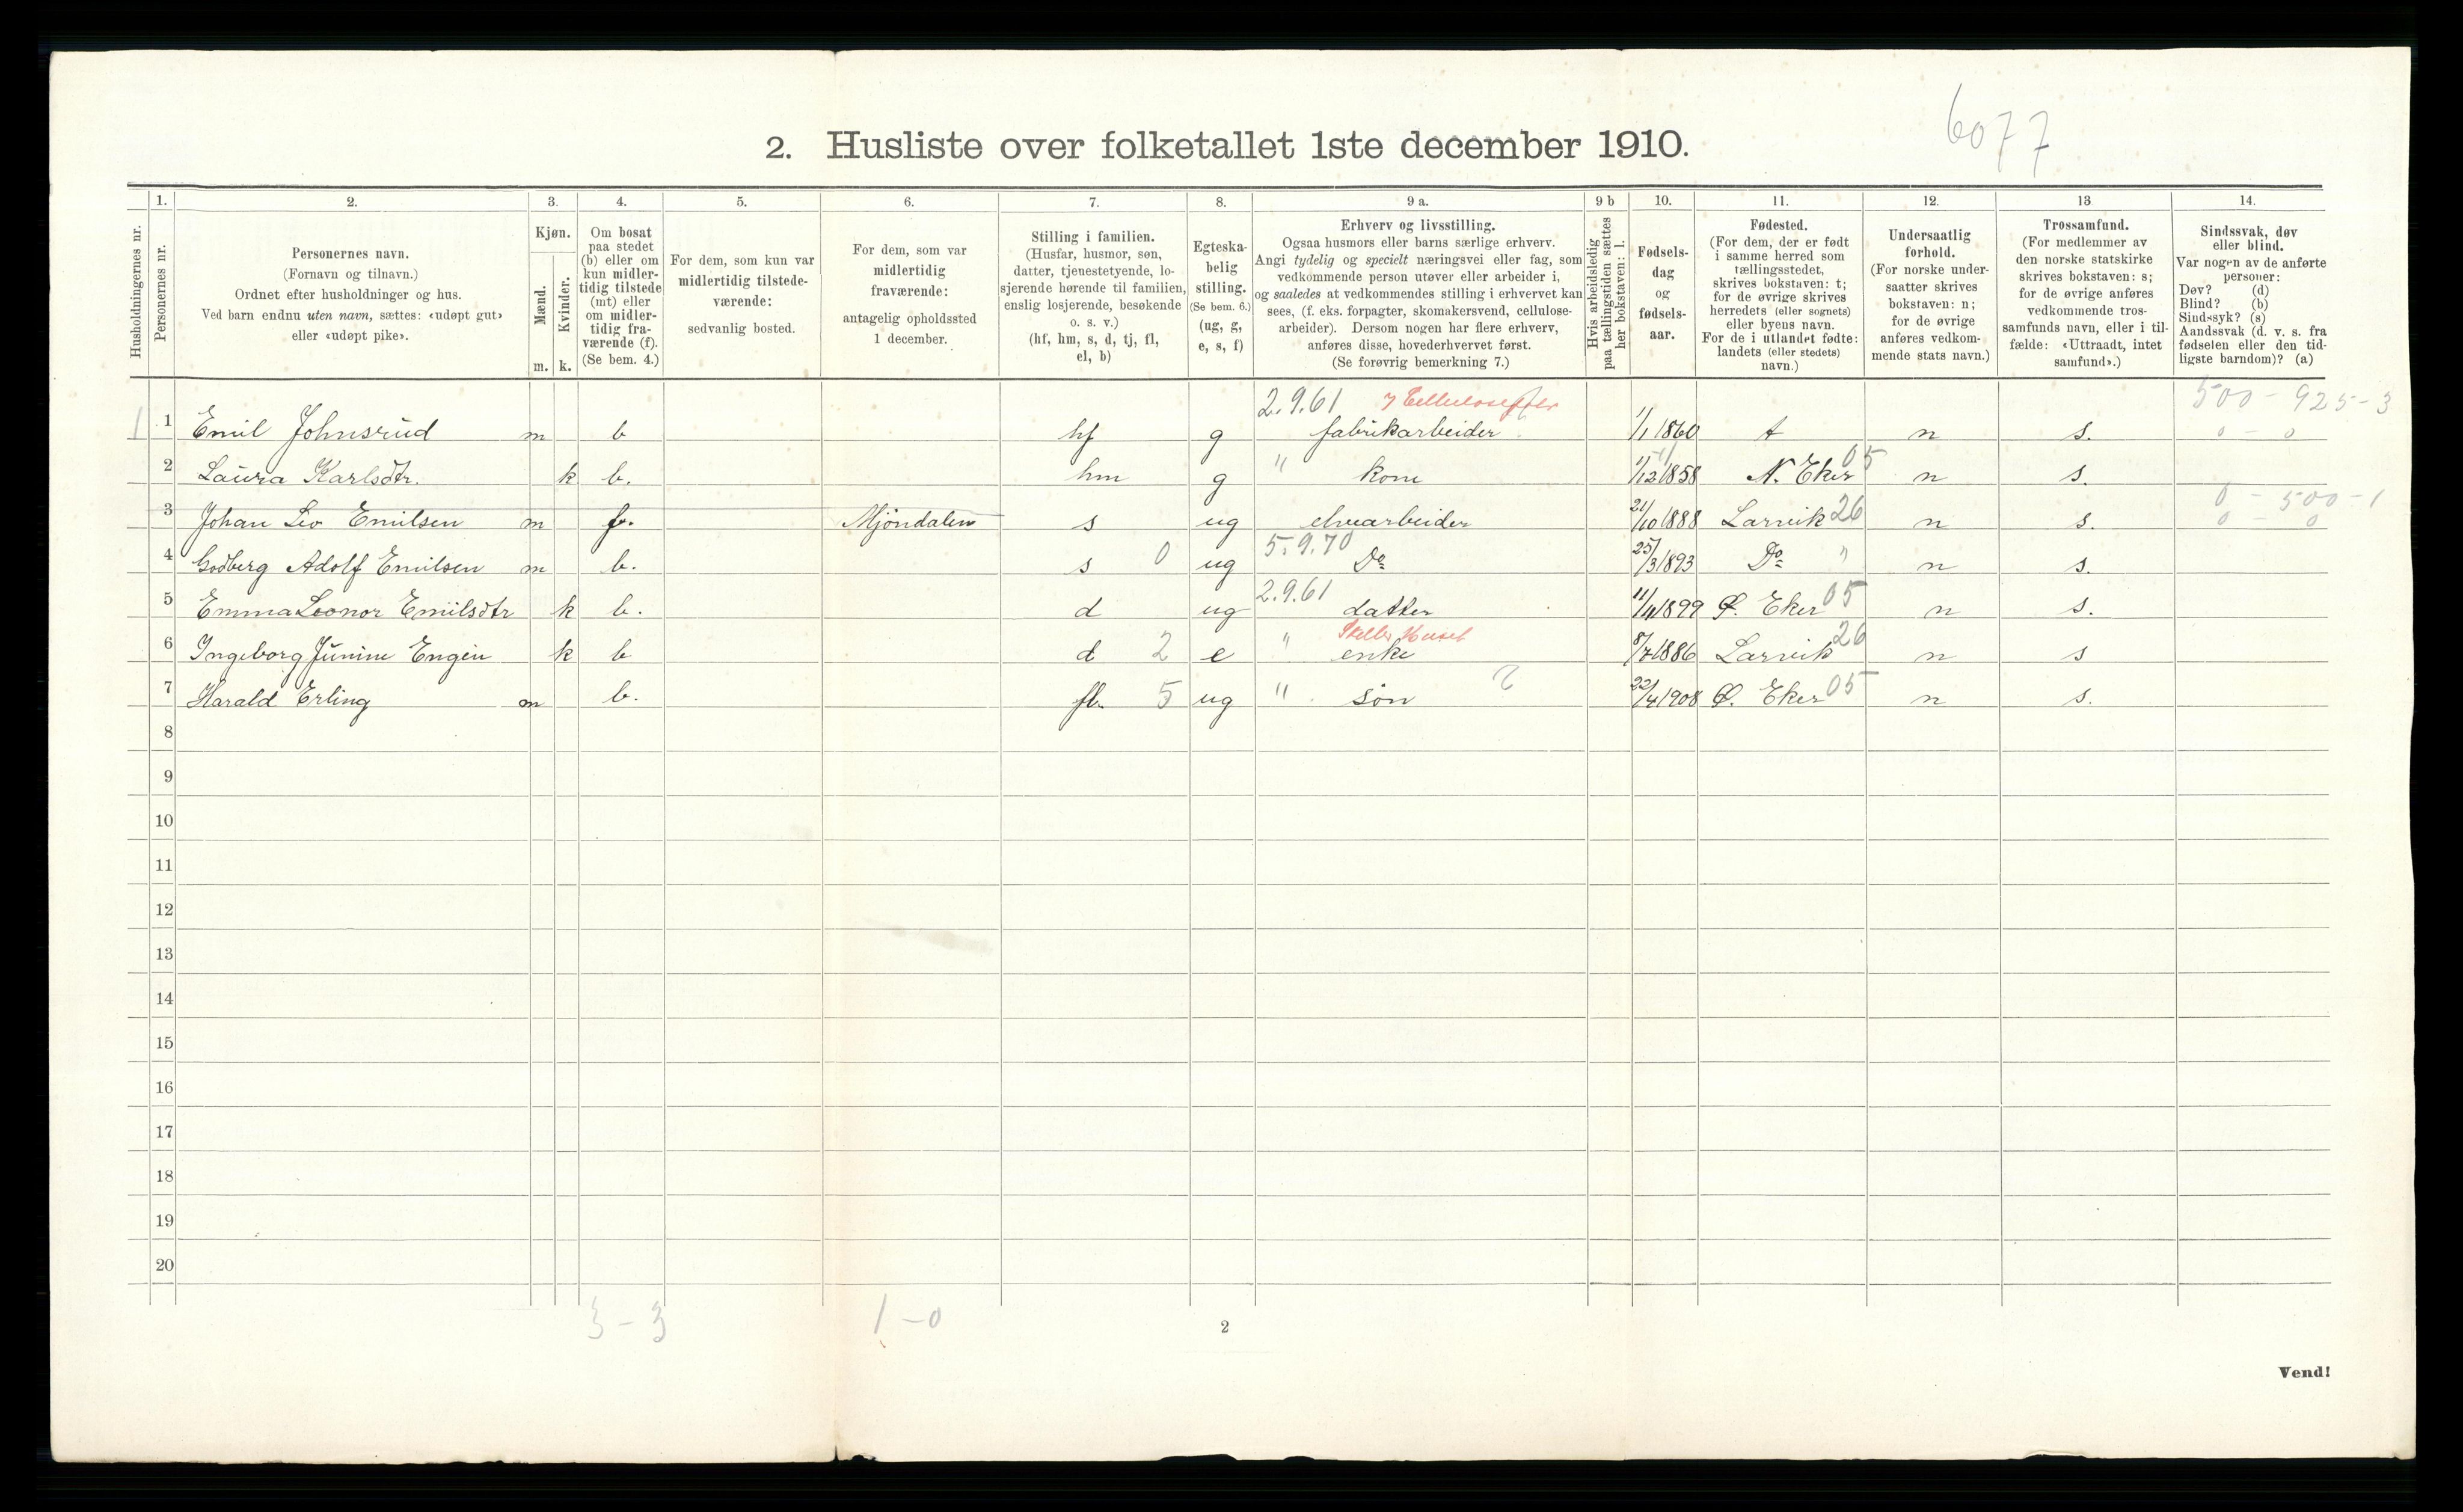 6077
2. Husliste over folketallet 1ste december 1910.
Husholdningernes nr.
1.
Personernes nr.
2.
Personernes navn.
(Fornavn og tilnavn.)
Ordnet efter husholdninger og hus.
Ved barn endnu uten navn, sættes: «udøpt gut»
eller «udøpt pike».
3.
Kjøn.
Mænd.
Kvinder.
m. k.
4.
Om bosat
paa stedet
(b) eller om
kun midler-
tidig tilstede
(mt) eller
om midler-
tidig fra-
værende (f).
(Se bem. 4.)
5.
For dem, som kun var
midlertidig tilstede-
værende:
sedvanlig bosted.
6.
For dem, som var
midlertidig
fraværende:
antagelig opholdssted
1 december.
7.
Stilling i familien.
(Husfar, husmor, søn,
datter, tjenestetyende, lo-
sjerende hørende til familien,
enslig losjerende, besøkende
o. s. v.)
(hf, hm, s, d, tj, fl,
el, b)
8.
Egteska-
belig
stilling.
(Se bem. 6.)
(ug, g,
e, s, f)
9 a.
Erhverv og livsstilling.
Ogsaa husmors eller barns særlige erhverv.
Angi tydelig og specielt næringsvei eller fag, som
vedkommende person utøver eller arbeider i,
og saaledes at vedkommendes stilling i erhvervet kan
sees, (f. eks. forpagter, skomakersvend, cellulose-
arbeider). Dersom nogen har flere erhverv,
anføres disse, hovederhvervet først.
(Se forøvrig bemerkning 7.)
9 b
Hvis arbeidsledig
paa tællingstiden sættes
her bokstaven: l.
10.
Fødsels-
dag
og
fødsels-
aar.
11.
Fødested.
(For dem, der er født
i samme herred som
tællingsstedet,
skrives bokstaven: t;
for de øvrige skrives
herredets (eller sognets)
eller byens navn.
For de i utlandet fødte:
landets (eller stedets)
navn.)
12.
Undersaatlig
forhold.
(For norske under-
saatter skrives
bokstaven: n;
for de øvrige
anføres vedkom-
mende stats navn.)
13
Trossamfund.
(For medlemmer av
den norske statskirke
skrives bokstaven: s;
for de øvrige anføres
vedkommende tros-
samfunds navn, eller i til-
fælde: «Uttraadt, intet
samfund».)
14.
Sindssvak, døv
eller blind.
Var nogen av de anførte
personer:
Døv? (d)
Blind? (b)
Sindssyk? (s)
Aandssvak (d. v. s. fra
fødselen eller den tid-
ligste barndom)? (a)
2.9.61 500 - 925 - 3
1 1 Emil Johnsrud m b hf g fabrikarbeider 1/1 1860 t n s. 0 - 0
2 Laura Karlsdtr. k b. hm g " kone 1/12 1858 N. Eker 05 n s.
0 - 500 - 1
3 Johan Leo Emilsen m f. Mjöndalen s ug elvearbeider 21/10 1888 Larvik 26 n s. 0 - 0
5.9.70
4 Godberg Adolf Emilsen m b. s 0 ug Do 25/3 1893 Do " n s.
2.9.61
5 Emma Leonor Emilsdtr k b. d ug datter 11/11 1899 Ø. Eker 05 n s.
6 Ingeborg Junine Engen k b d 2 e " enke 8/7 1886 Larvik 26 n s
7 Harald Erling m b. fl. 5 ug " søn 2 22/4 1908 Ø. Eker 05 n s.
8
9
10
11
12
13
14
15
16
17
18
19
20
3 - 3 1 - 0
2
Vend!